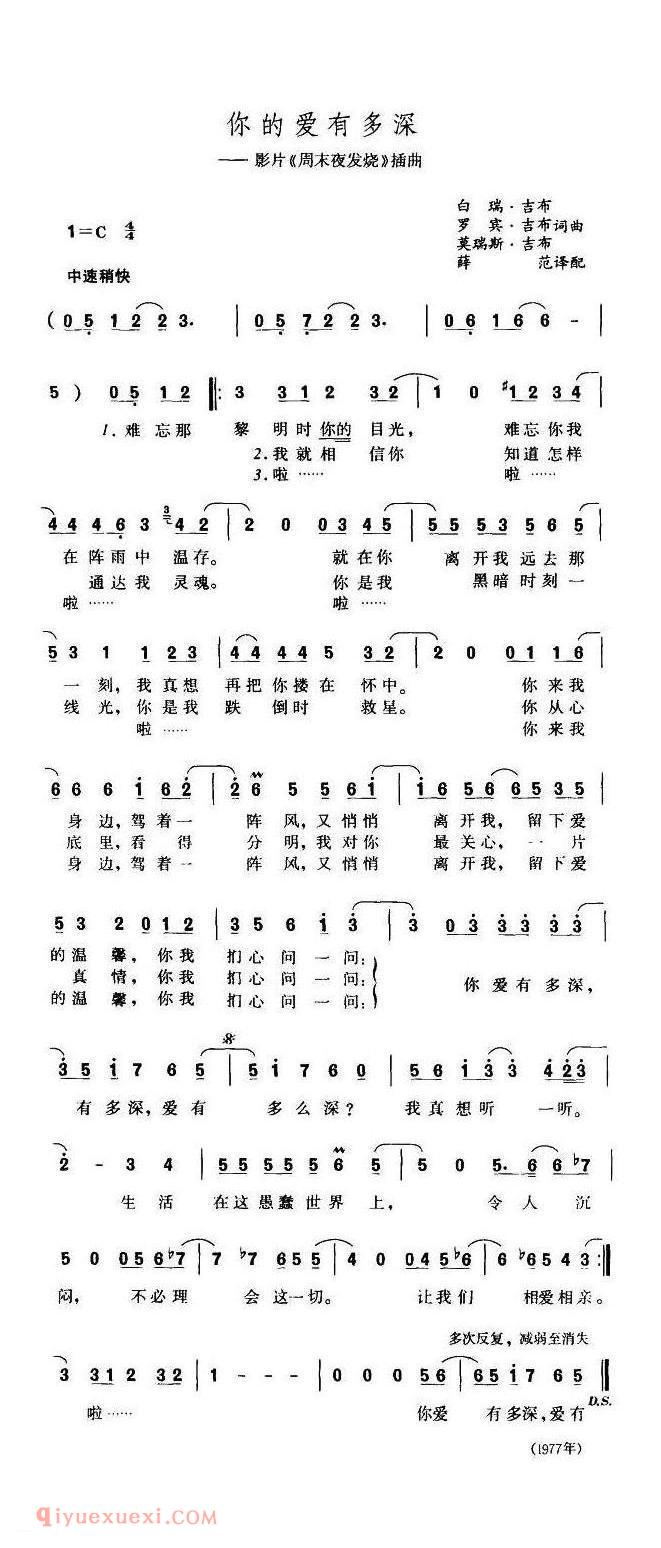 你的爱有多深
——影片《周末夜发烧》插曲
白瑞·吉布
1=C 4/4 罗宾·吉布词曲
莫瑞斯·吉布
中速稍快 薛范译配
( 0 5 1 2 2 3· | 0 5 7 2 2 3· | 0 6 1 6 6 - |
5 ) 0 5 1 2 |: 3 3 1 2 3 2 | 1 0 #1 2 3 4 |
1.难忘那 黎明时你的目光， 难忘你我
2.我就相信你 知道怎样
3.啦…… 啦……
4 4 4 6 3 3 4 2 | 2 0 0 3 4 5 | 5 5 5 3 5 6 5 |
在阵雨中温存。 就在你 离开我远去那
通达我灵魂。 你是我 黑暗时刻一
啦…… 啦……
5 3 1 1 2 3 | 4 4 4 4 5 3 2 | 2 0 0 1 1 6 |
一刻，我真想 再把你搂在怀中。 你来我
线光，你是我 跌倒时救星。 你从心
啦…… 你来我
6 6 6 1 6 2 | 2 6 5 5 6 1 | 1 6 5 6 6 5 3 5 |
身边，驾着一 阵风，又悄悄 离开我，留下爱
底里，看得 分明，我对你 最关心，一片
身边，驾着一 阵风，又悄悄 离开我，留下爱
5 3 2 0 1 2 | 3 5 6 1 3 | 3 0 3 3 3 3 3 |
的温馨，你我 扪心问一问：
真情，你我 扪心问一问： 你爱有多深，
的温馨，你我 扪心问一问：
3 5 1 7 6 5 | 5 1 7 6 0 | 5 6 1 3 3 4 2 3 |
有多深，爱有 多么深？ 我真想听一听。
2 - 3 4 | 5 5 5 5 5 6 5 | 5 0 5· 6 6 b7 |
生活 在这愚蠢世界上， 令人沉
5 0 0 5 6 b7 | 7 b7 6 5 5 | 4 0 0 4 5 b6 | 6 b6 5 4 3 :|
闷， 不必理 会这一切。 让我们 相爱相亲。
多次反复，减弱至消失
3 3 1 2 3 2 | 1 - - - | 0 0 0 5 6 | 6 5 1 7 6 5 ‖
D.S.
啦…… 你爱 有多深，爱有
(1977年)
qiyuexuexi.com